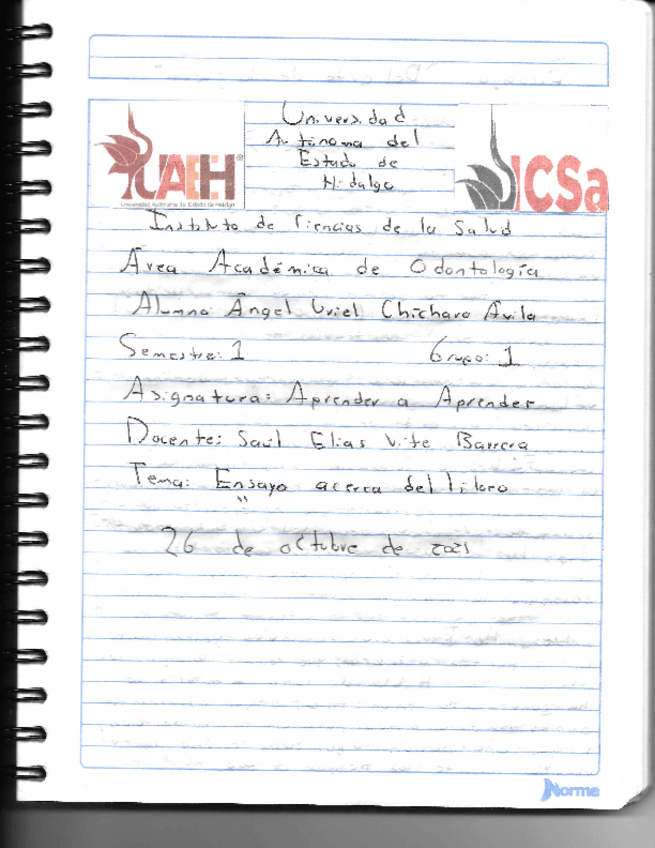 Universidad
Autónoma del
Estado de
Hidalgo
UAEH
Universidad Autónoma del Estado de Hidalgo
ICSa
Instituto de Ciencias de la Salud
Área Académica de Odontología
Alumno: Ángel Uriel Chicharo Ávila
Semestre: 1 Grupo: 1
Asignatura: Aprender a Aprender
Docente: Saúl Elias Vite Barrera
Tema: Ensayo acerca del libro
26 de octubre de 2021
Norma